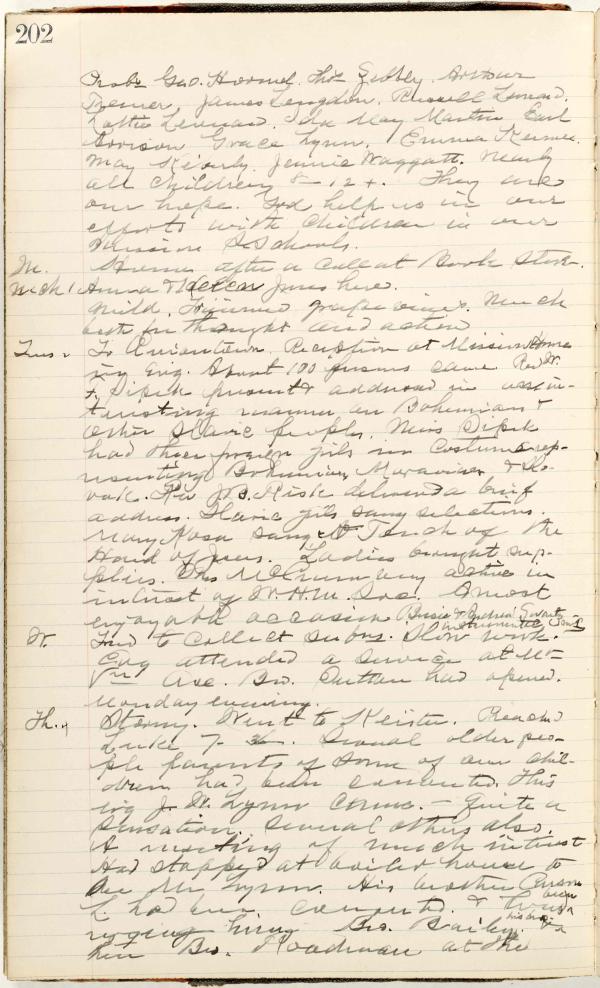 202
Prob. Geo. Hormel. Thos Gibbly. Arthur
Tremer, James Langdon, Russell Leonard.
Lottie Lennard. Ida May Martin Earl
Grace Lynn. Emma
May Jennie Waggatt. Nearly
all children 8-12+. They are
our hope. God help us in our
efforts with children in our
Mission S. Schools.
M. Home after a call at Book Store.
Anna & Helen Jones here.
Mild. Trimmed grape vines. Much
both for thought and action
Tues. To Uniontown. Reception at Mission Home
in evg. About 100 persons came Rev. W.
F. Sipek present & addressed in
teresting manner on Bohemian &
other Slavic peoples. Miss Sipek
had three foreign girls in costume rep-
resenting Bohemian, Moravian & Slo-
vak. Rev J. B. Risk delivered a brief
address. Slavic girls sang selections.
Mary Kosa sang the Touch of the
Hand of Jesus. Ladies brought sup-
plies. Mrs McCrum very active in
interest of W.H.M. Soc. A most
enjoyable occasion
W. Tried to collect subs. Slow work.
Evg attended a service at Mt
Vn Ave. Bro. Sutton had opened.
Monday evening.
Th. Stormy. Went to Keister. Read
Luke 7- 36. Several older peo-
ple parents of some of our chil-
dren had been converted. This
evg J. W. Lynn came. - Quite a
sensation. Several others also.
A meeting of much interest
Had stopped at boiler house to
see Mr. Lynn. His brother
had been converted. & was
urging him. Bro. Bailey
Bro. Roadman at the